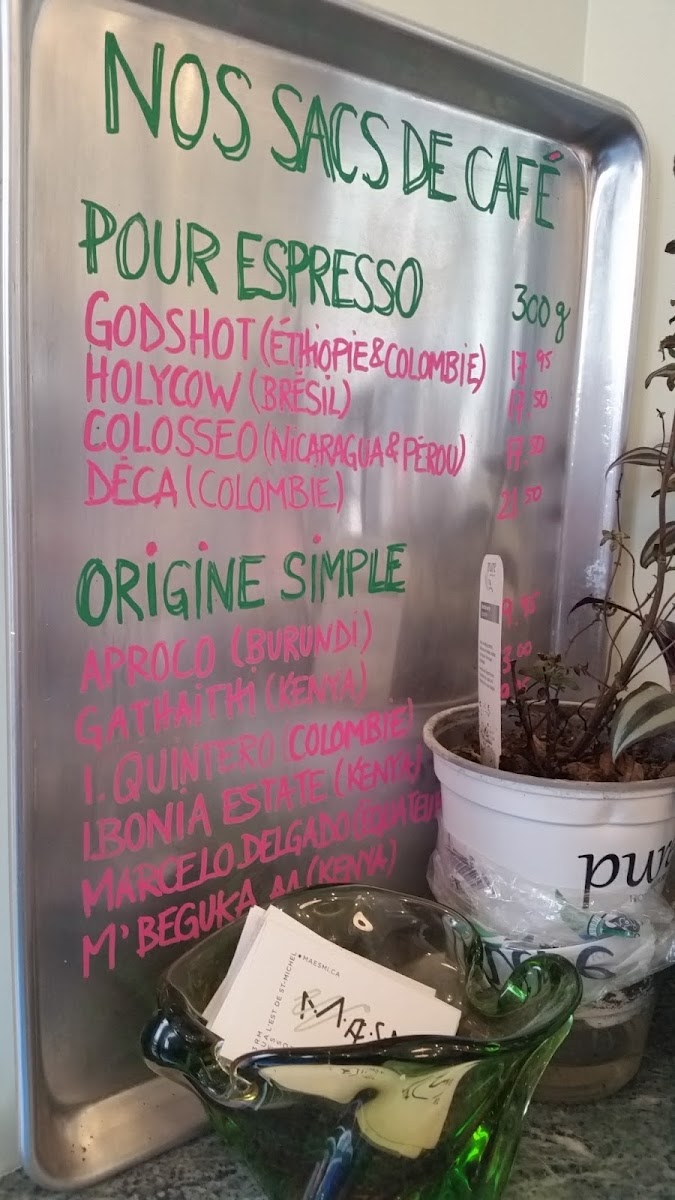 NOS SACS DE CAFÉ
POUR ESPRESSO 300g
GODSHOT (ÉTHIOPIE & COLOMBIE) 17.95
HOLYCOW (BRÉSIL) 17.50
COLOSSEO (NICARAGUA & PÉROU) 17.50
DÉCA (COLOMBIE) 21.50
ORIGINE SIMPLE
APROCO (BURUNDI) 9.95
GATHAITHI (KENYA) 3.00
I. QUINTERO (COLOMBIE)
I.BONIA ESTATE (KENYA)
MARCELO DELGADO (ÉQUATEUR
M'BEGUKA AA (KENYA)
pur
MAESMI.CA
L'EST DE ST-MICHEL
M.Æ.S